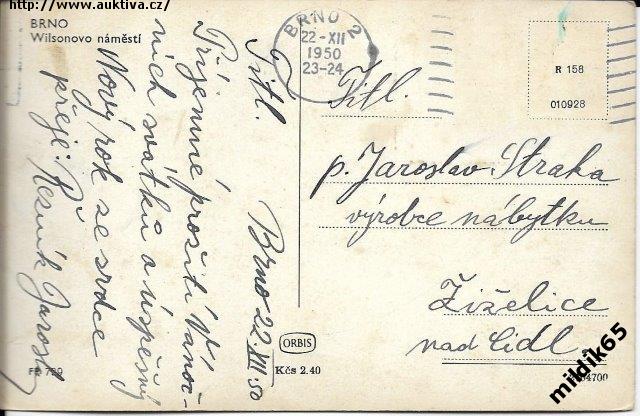 http://www.auktiva.cz/
BRNO
Wilsonovo náměstí
Brno 22. XII. 50
Titl.
Příjemné prožití Vánoč-
ních svátků a úspěšný
Nový rok se srdce
přeje: Řezník Jarosl.
BRNO 2
22-XII
1950
23-24
R 158
010928
Titl.
p. Jaroslav Straka
výrobce nábytku
Žiželice
nad Cidl.
ORBIS
Kčs 2.40
4700
mildik65